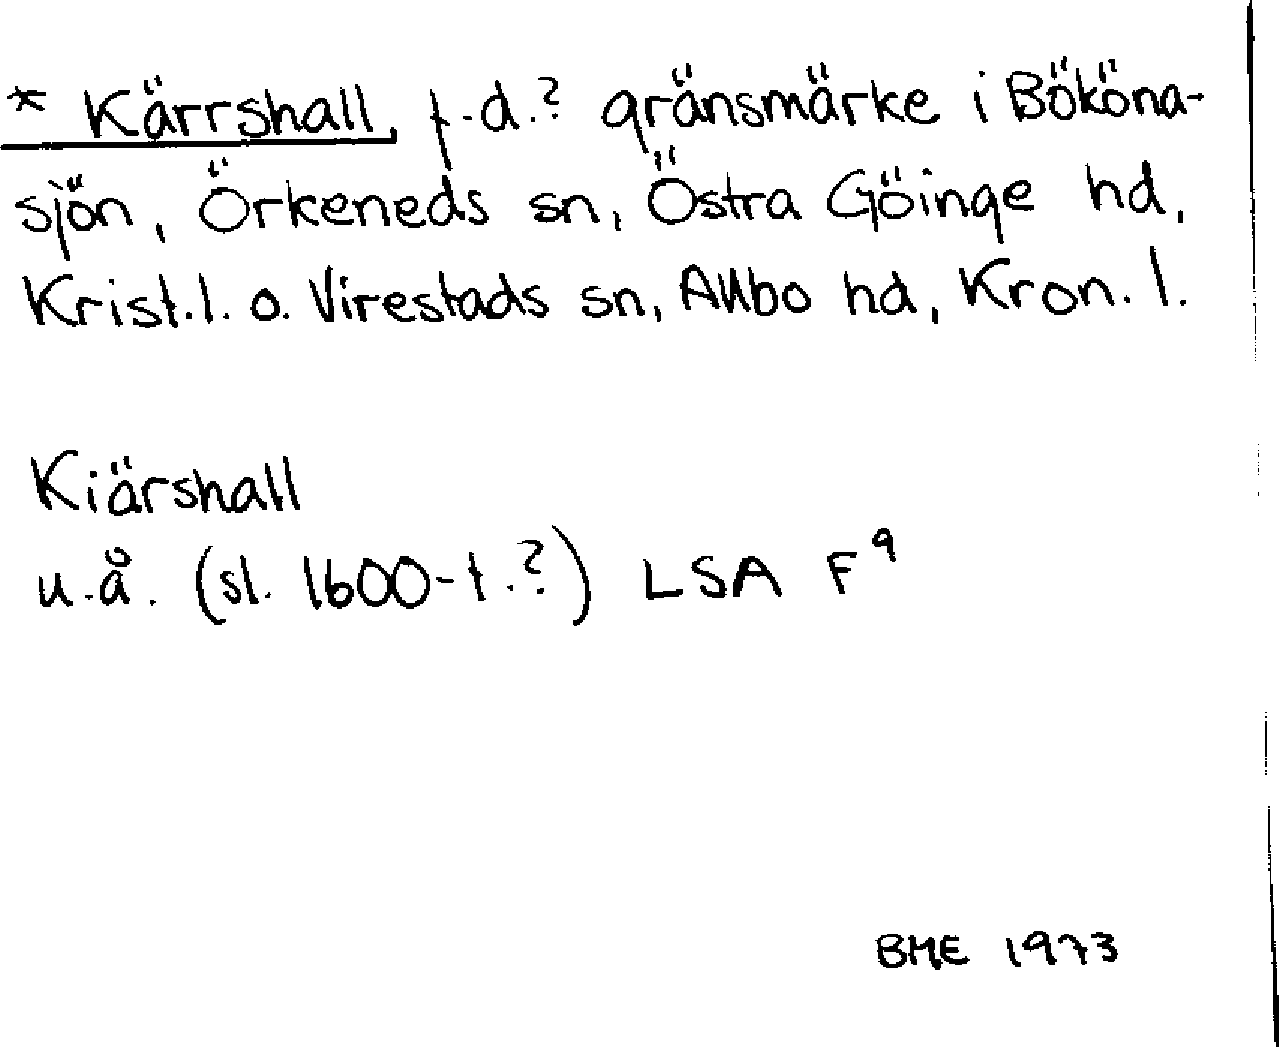 * Kärrshall, f.d.? gränsmärke i Bököna-
sjön, Örkeneds sn, Östra Göinge hd,
Krist.l. o. Virestads sn, Allbo hd, Kron. l.
Kiärshall
u.å. (sl. 1600-t.?) LSA F⁹
BME 1973